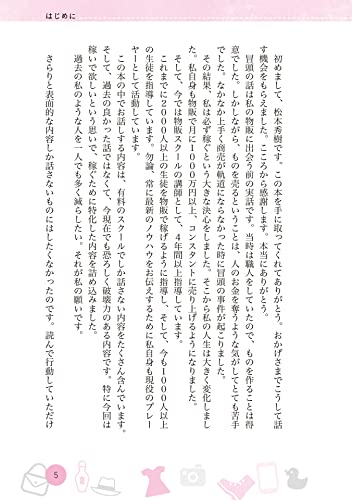 はじめに
初めまして、松本秀樹です。この本を手に取ってくれてありがとう。おかげさまでこうして話
す機会をもらえました。こころから感謝します。本当にありがとう。
冒頭の話は私の物販に出会う前の実話です。当時は職人をしていたので、ものを作ることは得
意でした。しかしながら、ものを売るということは、人のお金を奪うような気がしてとても苦手
でした。なかなか上手く商売が軌道にならなかった時に冒頭の事件が起こりました。
その結果、私は必ず稼ぐという大きな決心をしました。そこから私の人生は大きく変化しまし
た。私自身も物販で月に1000万円以上、コンスタントに売り上げるようになりました。
そして、今では物販スクールの講師として、4年間以上指導しています。
これまでに2000人以上の生徒を物販で稼げるように指導し、そして、今も1000人以上
の生徒を指導しています。勿論、常に最新のノウハウをお伝えするために私自身も現役のプレー
ヤーとして活動しています。
この本の中でお話しする内容は、有料のスクールでしか話さない内容をたくさん含んでいます。
そして、過去の良かった話ではなくて、今現在でも恐ろしく破壊力のある内容です。特に今回は
稼いで欲しいという思いで、稼ぐために特化した内容を詰め込みました。
過去の私のような人を一人でも多く減らしたい。それが私の願いです。
さらりと表面的な内容しか話さないものにはしたくなかったのです。読んで行動していただけ
5